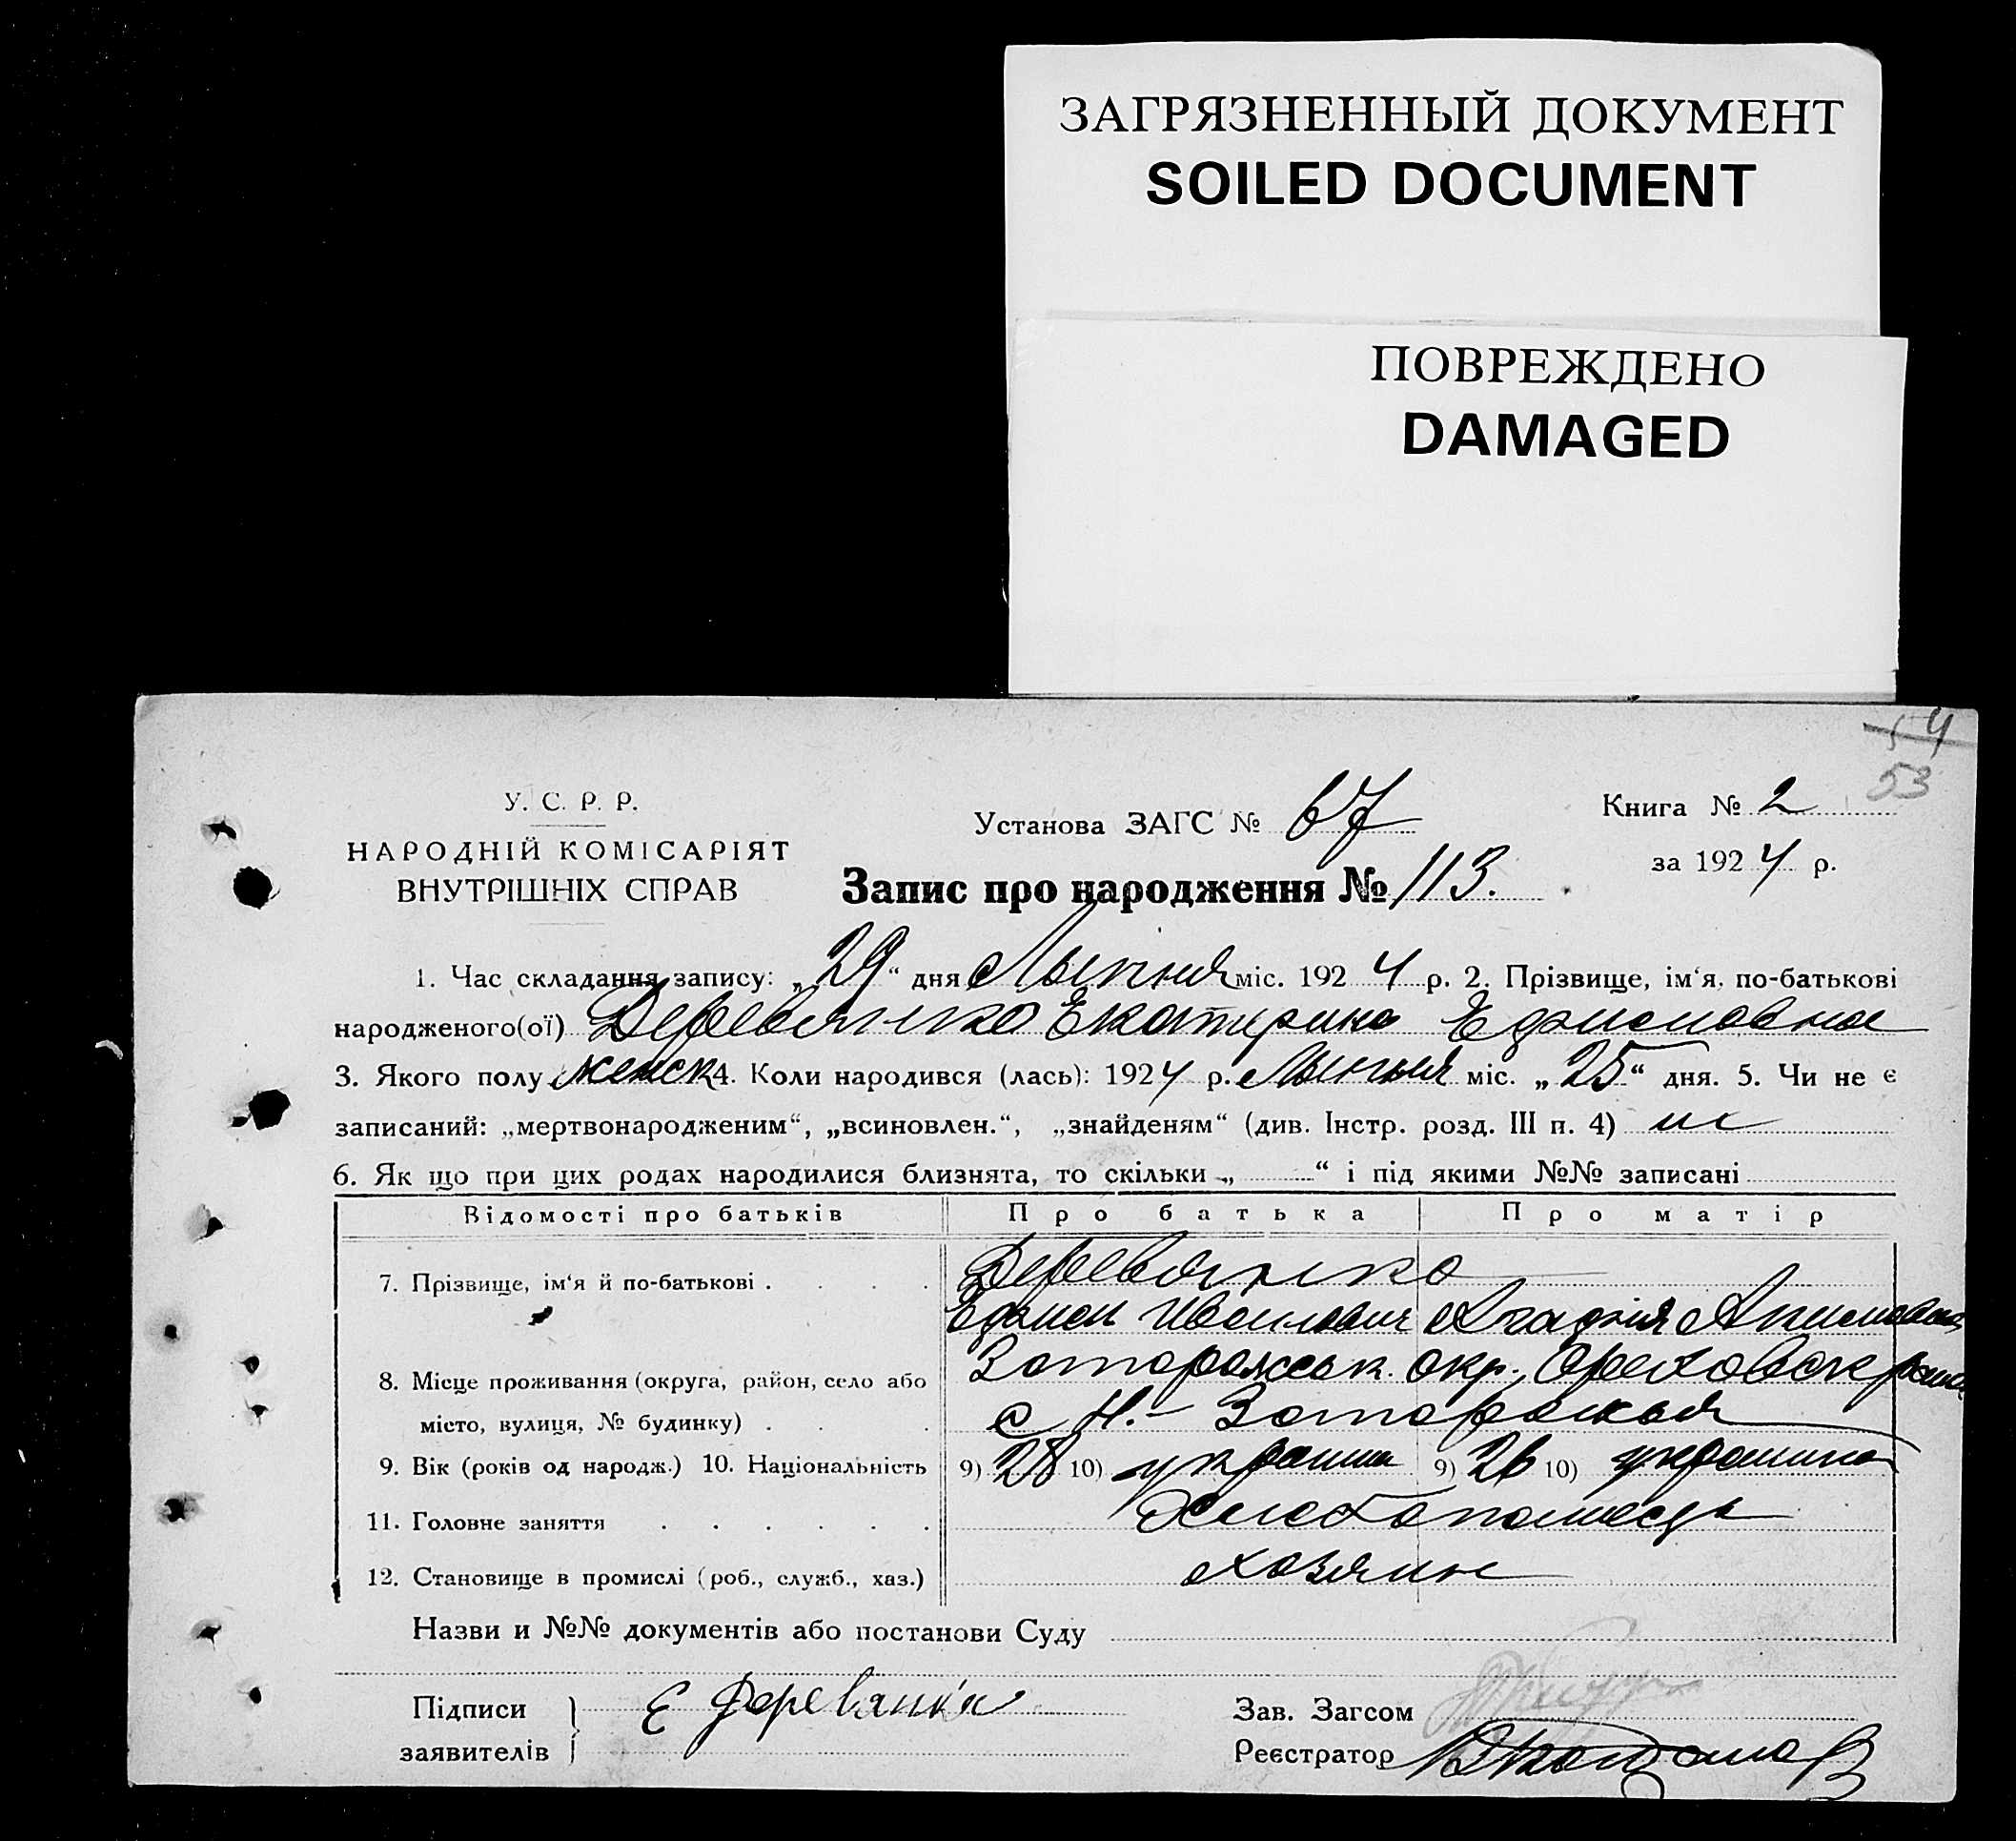 ЗАГРЯЗНЕННЫЙ ДОКУМЕНТ
SOILED DOCUMENT
ПОВРЕЖДЕНО
DAMAGED
54
53
У. С. Р. Р.
НАРОДНІЙ КОМІСАРІЯТ
ВНУТРІШНІХ СПРАВ
Установа ЗАГС № 67
Книга № 2
за 1924 р.
Запис про народження № 113.
1. Час складання запису: „29“ дня Лыпня міс. 1924 р. 2. Прізвище, ім‘я, по-батькові
народженого(ої) Деревянко Екатерина
3. Якого полу женск 4. Коли народився (лась): 1924 р. Лыпня міс. „25“ дня. 5. Чи не є
записаний: „мертвонародженим“, „всиновлен.“, „знайденям“ (див. Інстр. розд. III п. 4) не
6. Як що при цих родах народилися близнята, то скільки „ “ і під якими №№ записані
Відомості про батьків Про батька Про матір
7. Прізвище, ім‘я й по-батькові . . . . Деревянко
Иванович Агафия
8. Місце проживання (округа, район, село або Запорожськ. окр., Ореховск
місто, вулиця, № будинку) . . . с Н.-Запорожья
9. Вік (років од народж.) 10. Національність 9) 28 10) 9) 26 10)
11. Головне заняття . . . . . .
12. Становище в промислі (роб., служб., хаз.) хозяин
Назви и №№ документів або постанови Суду
Підписи Е Деревянко
заявителів
Зав. Загсом
Реєстратор